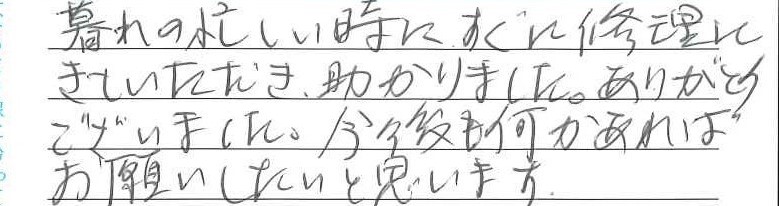 暮れの忙しい時に、すぐに修理に
きていただき、助かりました。ありがとう
ございました。今後も何かあれば
お願いしたいと思います。